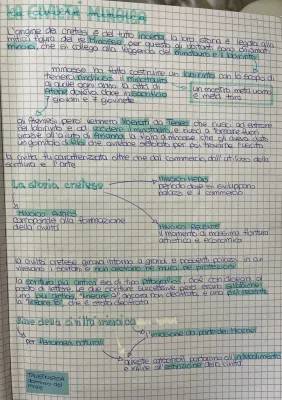 LA CIVILTÀ MINOICA
L'origine dei cretesi è del tutto incerta, la loro storia è legata alla
mitica figura del re Minosse, per questo gli abitanti erano chiamati
minoici, che si collega alla leggenda del minotauro e il labirinto
minosse ha fatto costruire un labirinto con lo scopo di
tenerci rinchiuso il minotauro
al quale ogni anno la città di
Atene doveva dare in sacrificio
7 giovani e 7 giovinette
un mostro metà uomo
e metà toro
gli Ateniesi però vennero liberati da Teseo che riuscì ad entrare
nel labirinto e ad uccidere il minotauro, e riuscì a tornare fuori
grazie all'aiuto di Arianna la figlia di minosse che gli aveva dato
un gomitolo di filo che avrebbe per poi trovarne l'uscita
la civiltà fu caratterizzata oltre che dal commercio, dall'utilizzo della
scrittura e l'arte
La storia cretese
MINOICO MEDIO
periodo dove si sviluppano
palazzi e il commercio
MINOICO ANTICO
corrisponde alla formazione
della civiltà
MINOICO RECENTE
il momento di massima fioritura
artistica e economica
la civiltà cretese girava intorno a grandi e potenti palazzi in cui
vivevano i sovrani e non avevano né mura né protezioni
la scrittura più antica era di tipo pittografico, cioè con disegni al
posto di lettere. Le due scritture successive però erano sillabiche:
una più antica, "lineare A", ancora non decifrata, e una più recente
la "lineare B", che è stata decifrata
Fine della civiltà minoica
per fenomeni naturali
invasione da parte dei Micenei
queste catastrofi portarono all'indebolimento
e infine all'estinzione della civiltà
TALASSOCRAZIA
dominio del
mare